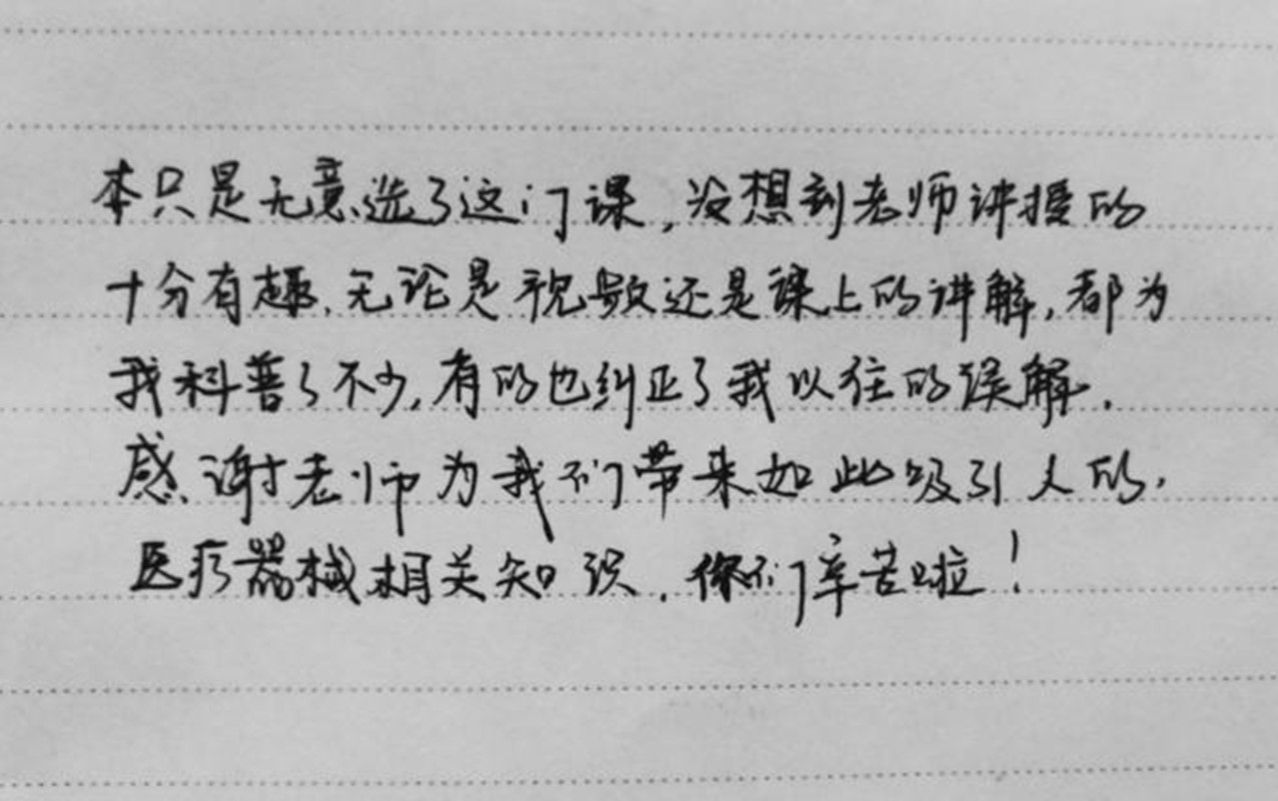 本只是无意选了这门课,没想到老师讲授的
十分有趣.无论是视频还是课上的讲解,都为
我科普了不少,有的也纠正了我以往的误解.
感谢老师为我们带来如此吸引人的,
医疗器械相关知识.你们辛苦啦!